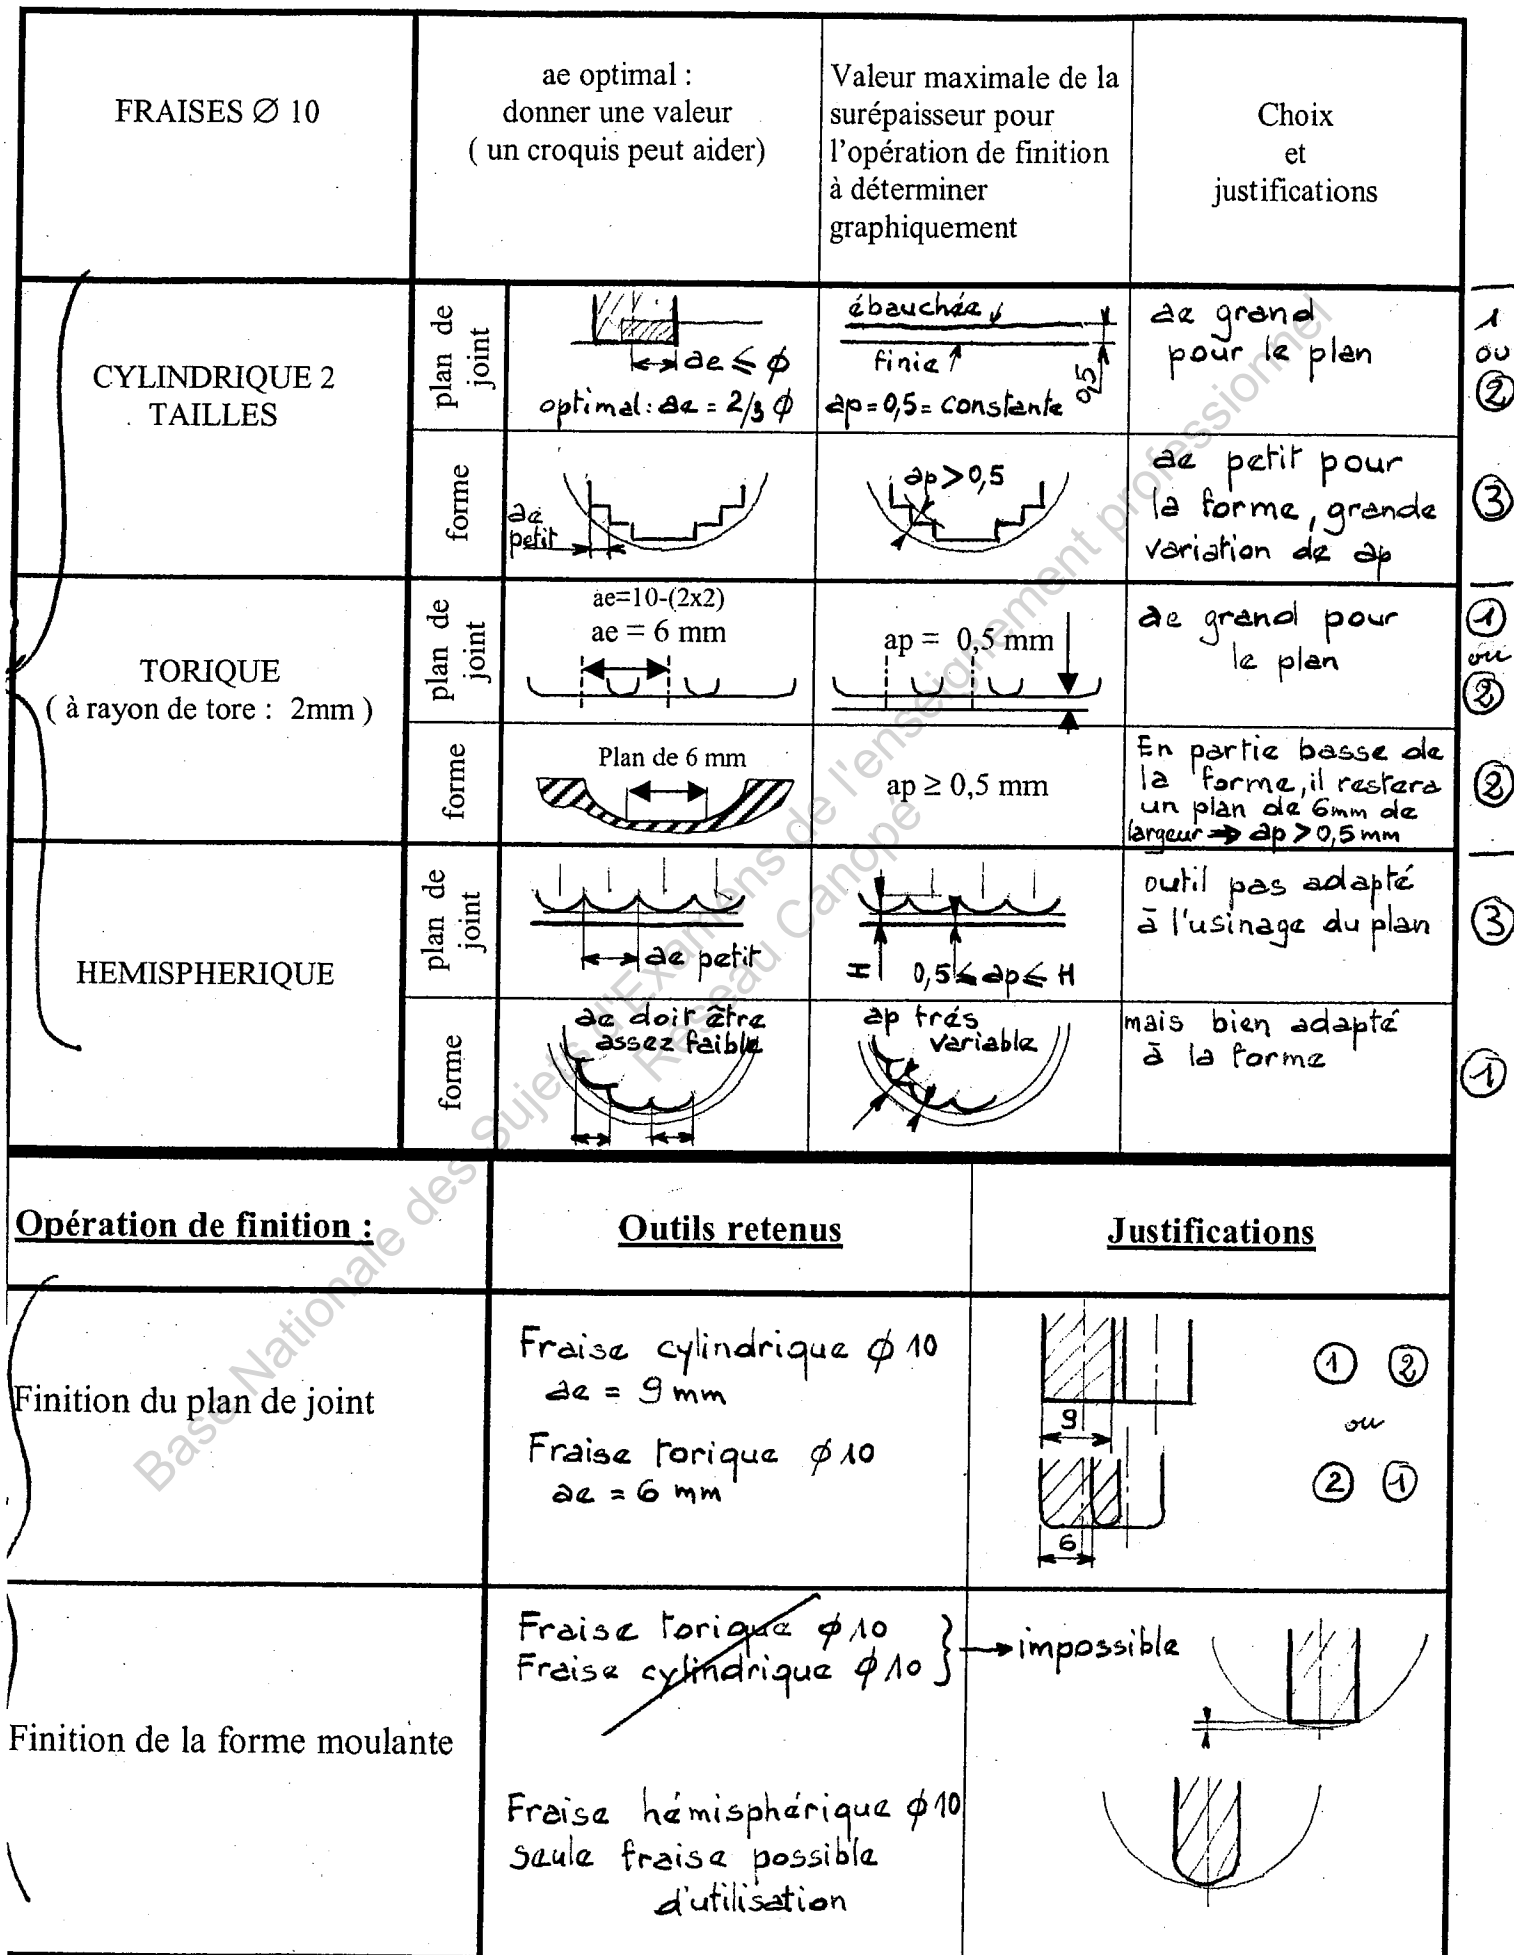 FRAISES Ø 10
ae optimal :
donner une valeur
( un croquis peut aider)
Valeur maximale de la
surépaisseur pour
l'opération de finition
à déterminer
graphiquement
Choix
et
justifications
CYLINDRIQUE 2
TAILLES
plan de
joint
ae ≤ ϕ
optimal: ae = 2/3 ϕ
ébauchée
finie
0,5
ap=0,5= constante
ae grand
pour le plan
1
ou
2
forme
ae
petit
ap>0,5
ae petit pour
la forme, grande
variation de ap
3
TORIQUE
( à rayon de tore : 2mm )
plan de
joint
ae=10-(2x2)
ae = 6 mm
ap = 0,5 mm
ae grand pour
le plan
1
ou
2
forme
Plan de 6 mm
ap ≥ 0,5 mm
En partie basse de
la forme, il restera
un plan de 6mm de
largeur ➔ ap > 0,5 mm
2
HEMISPHERIQUE
plan de
joint
ae petit
H
0,5 ≤ ap ≤ H
outil pas adapté
à l'usinage du plan
3
forme
ae doit être
assez faible
ap trés
variable
mais bien adapté
à la forme
1
Opération de finition :
Outils retenus
Justifications
Finition du plan de joint
Fraise cylindrique ϕ 10
ae = 9 mm
Fraise torique ϕ 10
ae = 6 mm
9
6
1 2
ou
2 1
Finition de la forme moulante
Fraise torique ϕ 10
Fraise cylindrique ϕ 10
→ impossible
Fraise hémisphérique ϕ 10
seule fraise possible
d'utilisation
Base Nationale des Sujets d'Examens de l'enseignement professionnel
Réseau Canopé